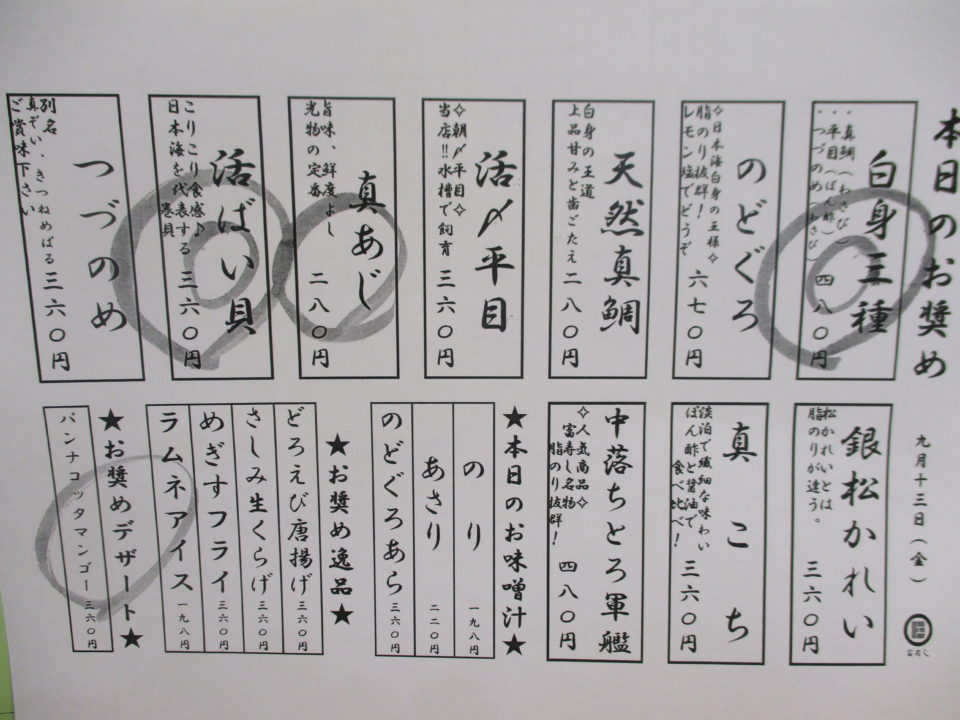 本日のお奨め
九月十三日(金)
白身三種
・真鯛(わさび)
・平目(ぽん酢)
・つづのめ(わさび)
四八〇円
のどぐろ
✧日本海白身の王様✧
脂のり抜群!
レモン塩でどうぞ
六七〇円
天然真鯛
白身の王道
上品甘みと歯ごたえ
二八〇円
活〆平目
✧朝〆平目✧
当店!!水槽で飼育
三六〇円
真あじ
旨味、鮮度よし
光物の定番
二八〇円
活ばい貝
こりこり食感♪
日本海を代表する
巻貝
三六〇円
つづのめ
別名
真ぞい、きつねめばる
ご賞味下さい
三六〇円
銀松かれい
松かれいとは
脂のりが違う。
三六〇円
真こち
淡泊で繊細な味わい
ぽん酢と醤油で
食べ比べ!
三六〇円
中落ちとろ軍艦
✧人気商品✧
富寿し名物
脂のり抜群!
四八〇円
★本日のお味噌汁★
のり 一九八円
あさり 二二〇円
のどぐろあら 三六〇円
★お奨め逸品★
どろえび唐揚げ 三六〇円
さしみ生くらげ 三六〇円
めぎすフライ 三六〇円
ラムネアイス 一九八円
★お奨めデザート★
パンナコッタマンゴー 三六〇円